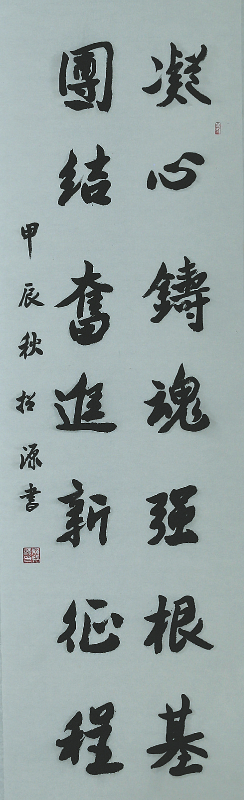 凝心鑄魂强根基
團結奮進新征程
甲辰秋招源書